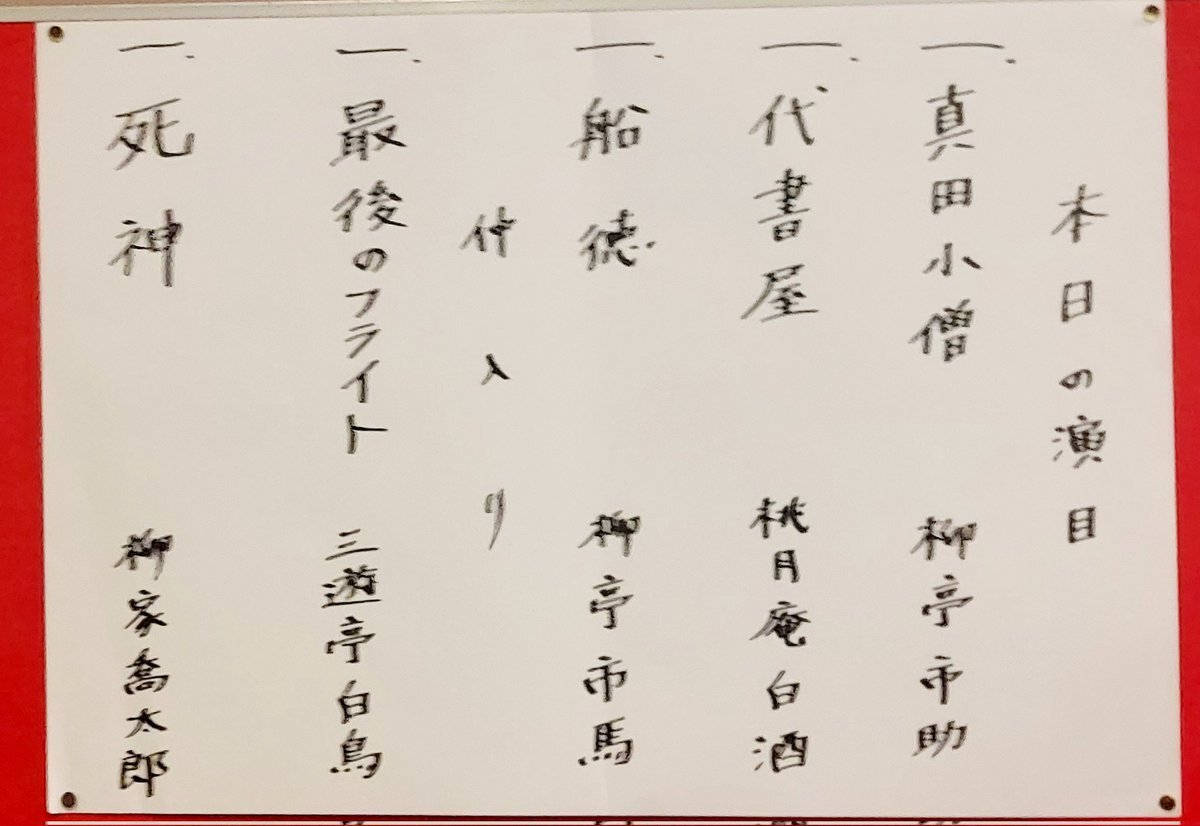 本日の演目
一. 真田小僧 柳亭市助
一. 代書屋 桃月庵白酒
一. 船徳 柳亭市馬
仲入り
一. 最後のフライト 三遊亭白鳥
一. 死神 柳家喬太郎